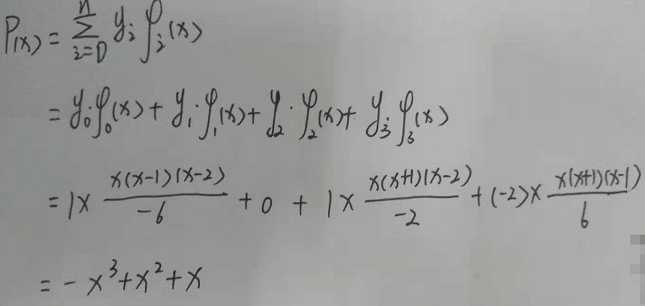 P(x) = ∑_{i=0}^{n} y_i φ_i(x)
= y_0 φ_0(x) + y_1·φ_1(x) + y_2·φ_2(x) + y_3 φ_3(x)
= 1 × \frac{x(x-1)(x-2)}{-6} + 0 + 1 × \frac{x(x+1)(x-2)}{-2} + (-2) × \frac{x(x+1)(x-1)}{6}
= -x^3 + x^2 + x